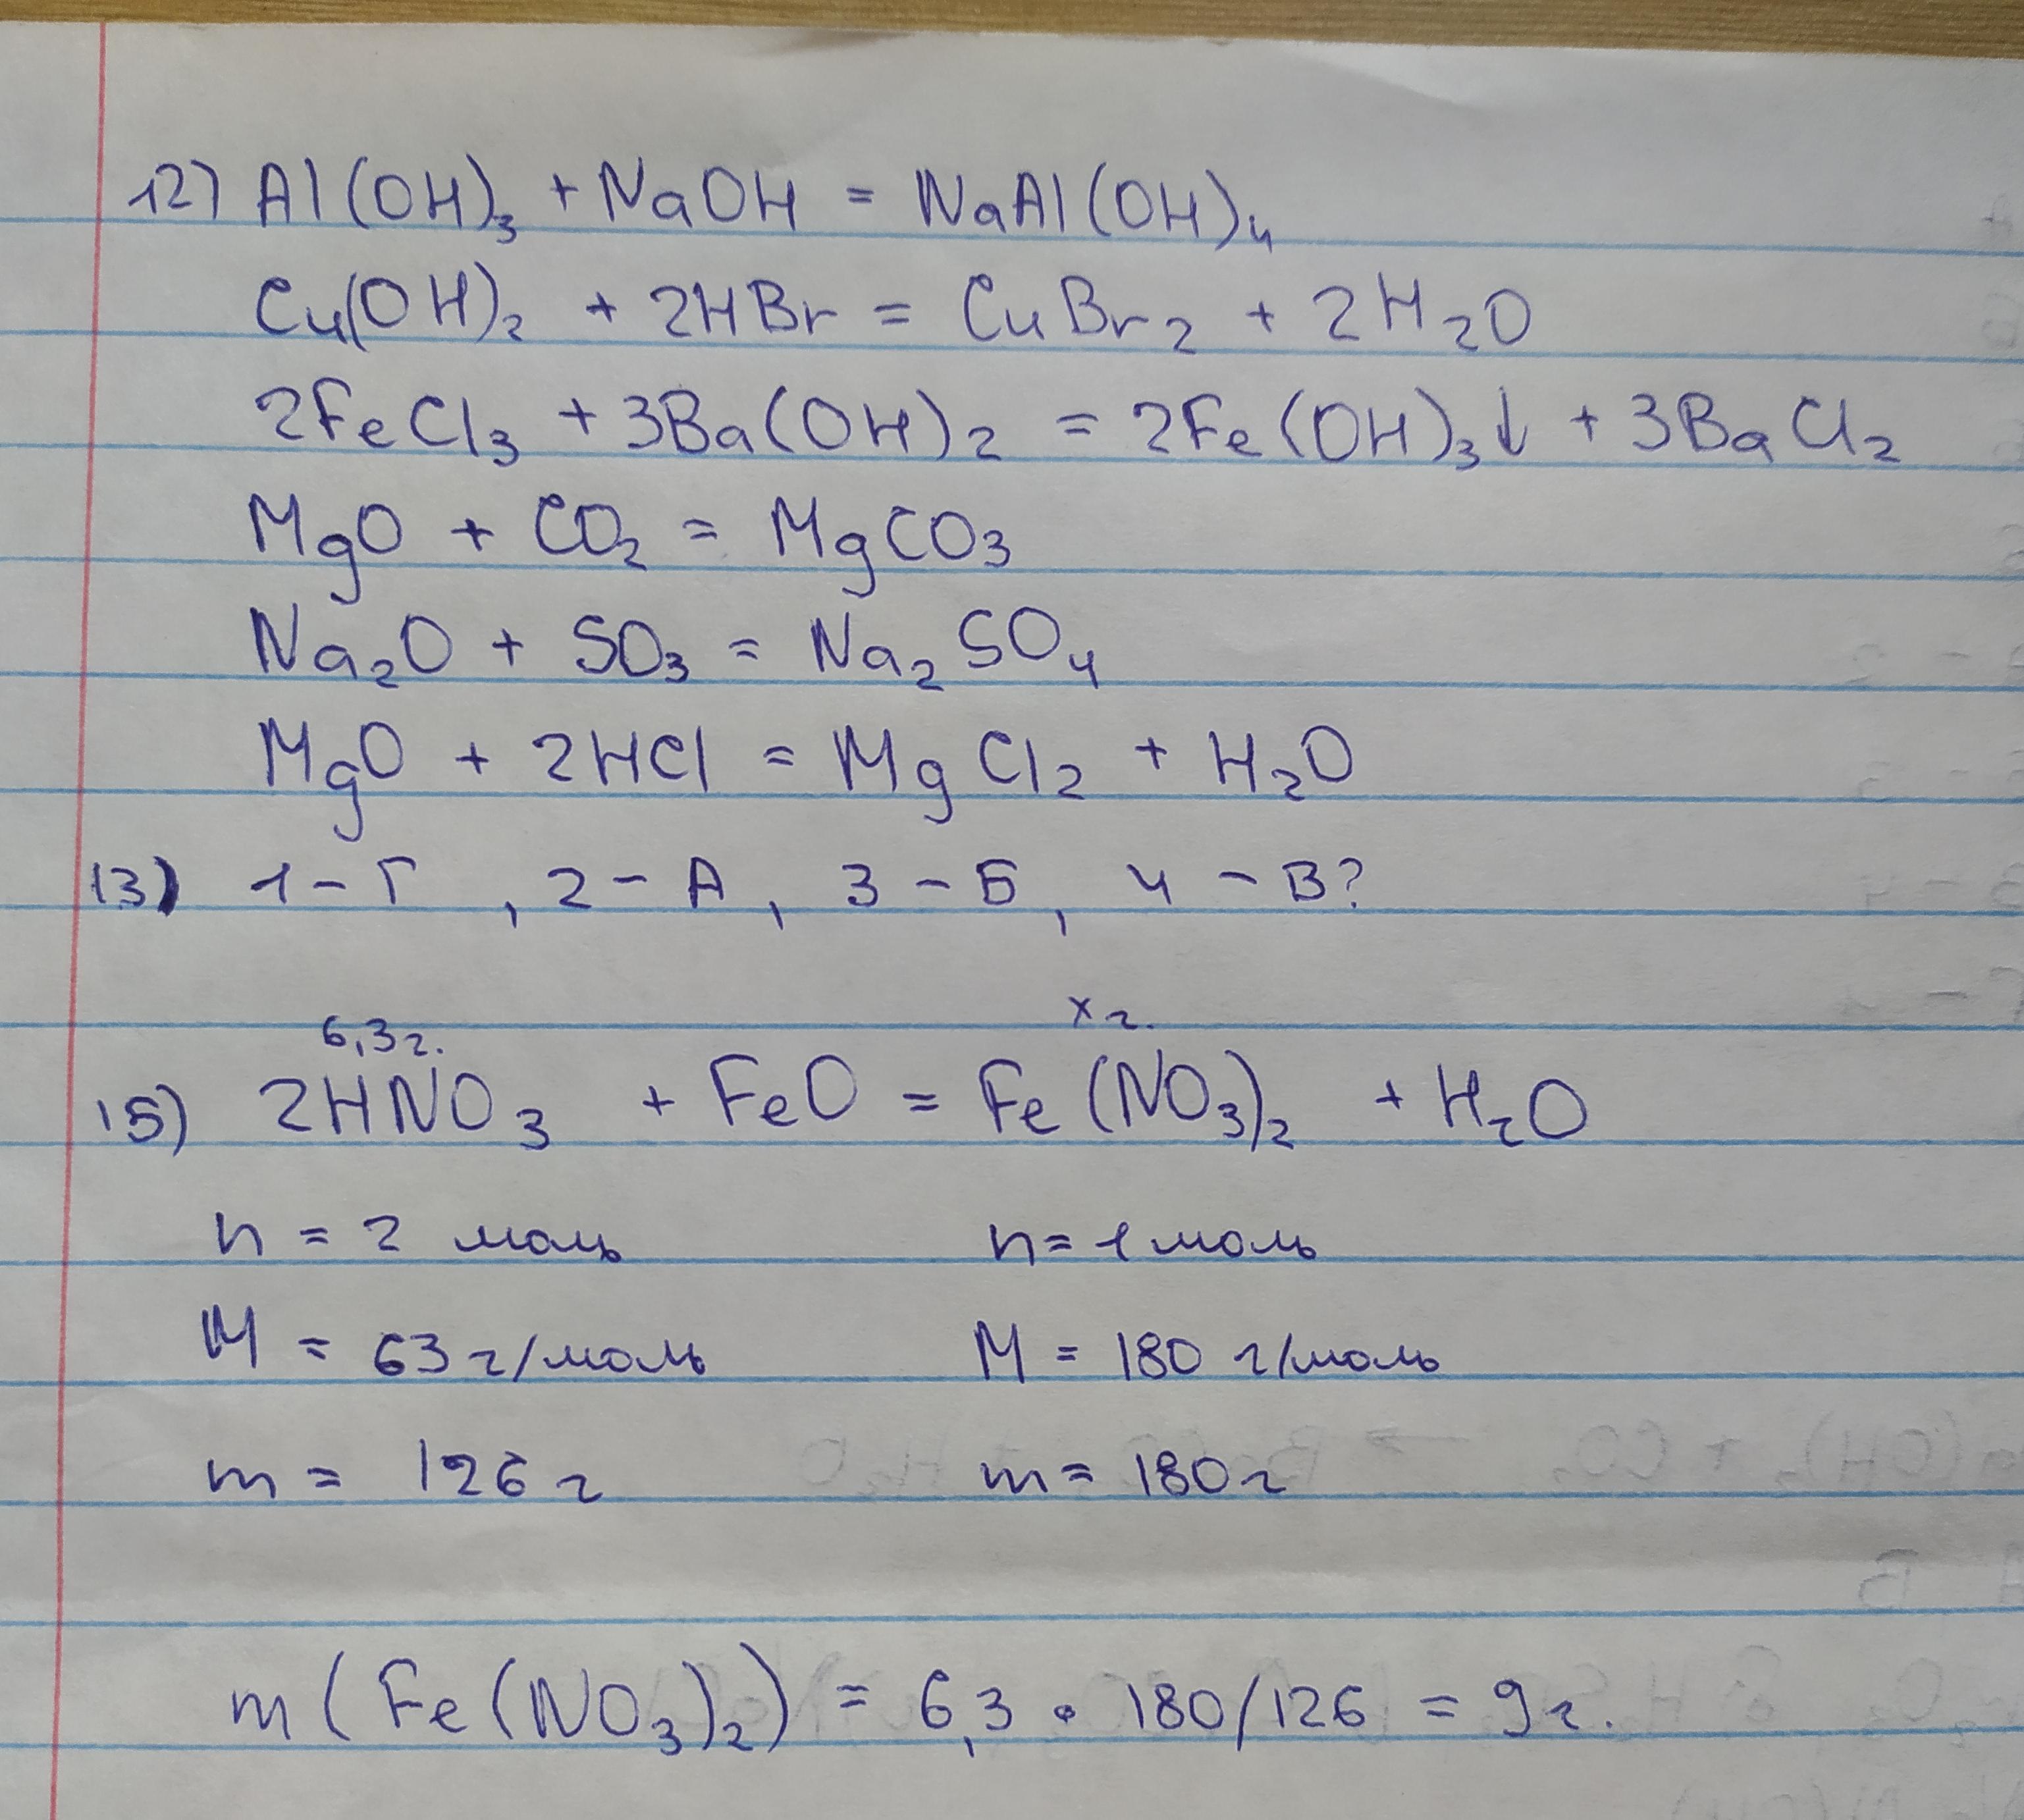 12) Al(OH)₃ + NaOH = NaAl(OH)₄
Cu(OH)₂ + 2HBr = CuBr₂ + 2H₂O
2FeCl₃ + 3Ba(OH)₂ = 2Fe(OH)₃↓ + 3BaCl₂
MgO + CO₂ = MgCO₃
Na₂O + SO₃ = Na₂SO₄
MgO + 2HCl = MgCl₂ + H₂O
13) 1 – Г, 2 – А, 3 – Б, 4 – В?
6,3 г. х г.
15) 2HNO₃ + FeO = Fe(NO₃)₂ + H₂O
n = 2 моль n = 1 моль
M = 63 г/моль M = 180 г/моль
m = 126 г m = 180 г
m(Fe(NO₃)₂) = 6,3 • 180/126 = 9 г.